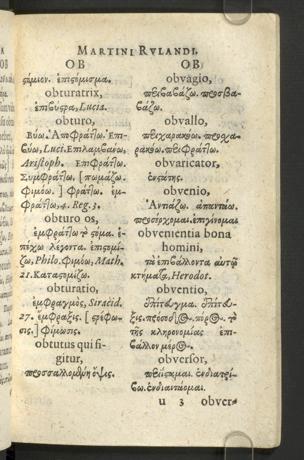 MARTINI RVLANDI.
OB OB
στόμιον. ἐπιστόμισμα.
obturatrix,
ἐπιβύστρα, Lucia.
obturo,
Βύω. Ἀποφράττω. Ἐπι-
βύω, Luci. Ἐπιλαμβάνω,
Aristoph. Ἐπιφράττω.
Συμφράττω, [πωμάζω.
φιμόω.] φράττω. ἐμ-
φράττω, 4. Reg. 3.
obturo os,
ἐμφράττω τὸ στόμα. ἐ-
πέχω λέγοντα. ἐπιστομί-
ζω, Philo. Φιμόω, Math.
21. Καταστομίζω.
obturatio,
ἐμφραγμὸς, Siracid.
27. ἔμφραξις. [στρέφω-
σις.] Φίμωσις.
obtutus qui fi-
gitur,
ὄψις.
obvagio,
περιβαβάζω. προσβα-
βάζω.
obvallo,
περιχαρακόω. προχα-
ρακόω. περιφράττω.
obvaricator,
obvenio,
Ἀντιάζω. ἀπαντάω.
προσέρχομαι. ἐπιγίνομαι
obvenientia bona
homini,
τὰ ἐπιβάλλοντα αὐτῷ
κτήματα, Herodot.
obventio,
πρόσοδος. πόρος. τὸ
τῆς κληρονομίας ἐπι-
βάλλον μέρος.
obversor,
ἐνδιατρί-
βω. ἐνδιαιτάομαι.
u 3 obver-